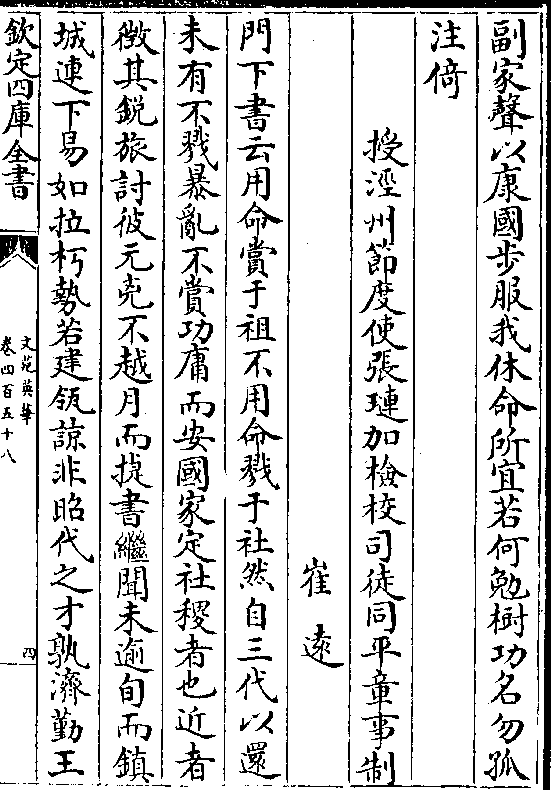 副家聲以康國步服我休命所宜若何勉樹功名勿孤
注倚
授涇州節度使張璉加檢校司徒同平章事制
崔遠
門下書云用命賞于祖不用命戮于社然自三代以還
未有不戮暴亂不賞功庸而安國家定社稷者也近者
徴其鋭旅討彼元兇不越月而捷書繼聞未逾旬而鎮
城連下易如拉朽勢若建瓴諒非昭代之才孰濟勤王
欽定四庫全書
文苑英華
卷四百五十八
四